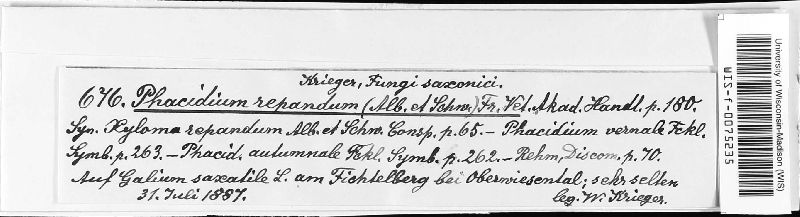 Krieger, Fungi saxonici.
676. Phacidium repandum (Alb. et Schw.) Fr. Vet. Akad. Handl. p. 180.
Syn. Xyloma repandum Alb. et Schw. Consp. p. 65. — Phacidium vernale Fckl.
Symb. p. 263. — Phacid. autumnale Fckl. Symb. p. 262. — Rehm, Discom. p. 70.
Auf Galium saxatile L. am Fichtelberg bei Oberwiesental; sehr selten
31. Juli 1887. leg. W. Krieger.
University of Wisconsin-Madison (WIS)
WIS-f-0075235